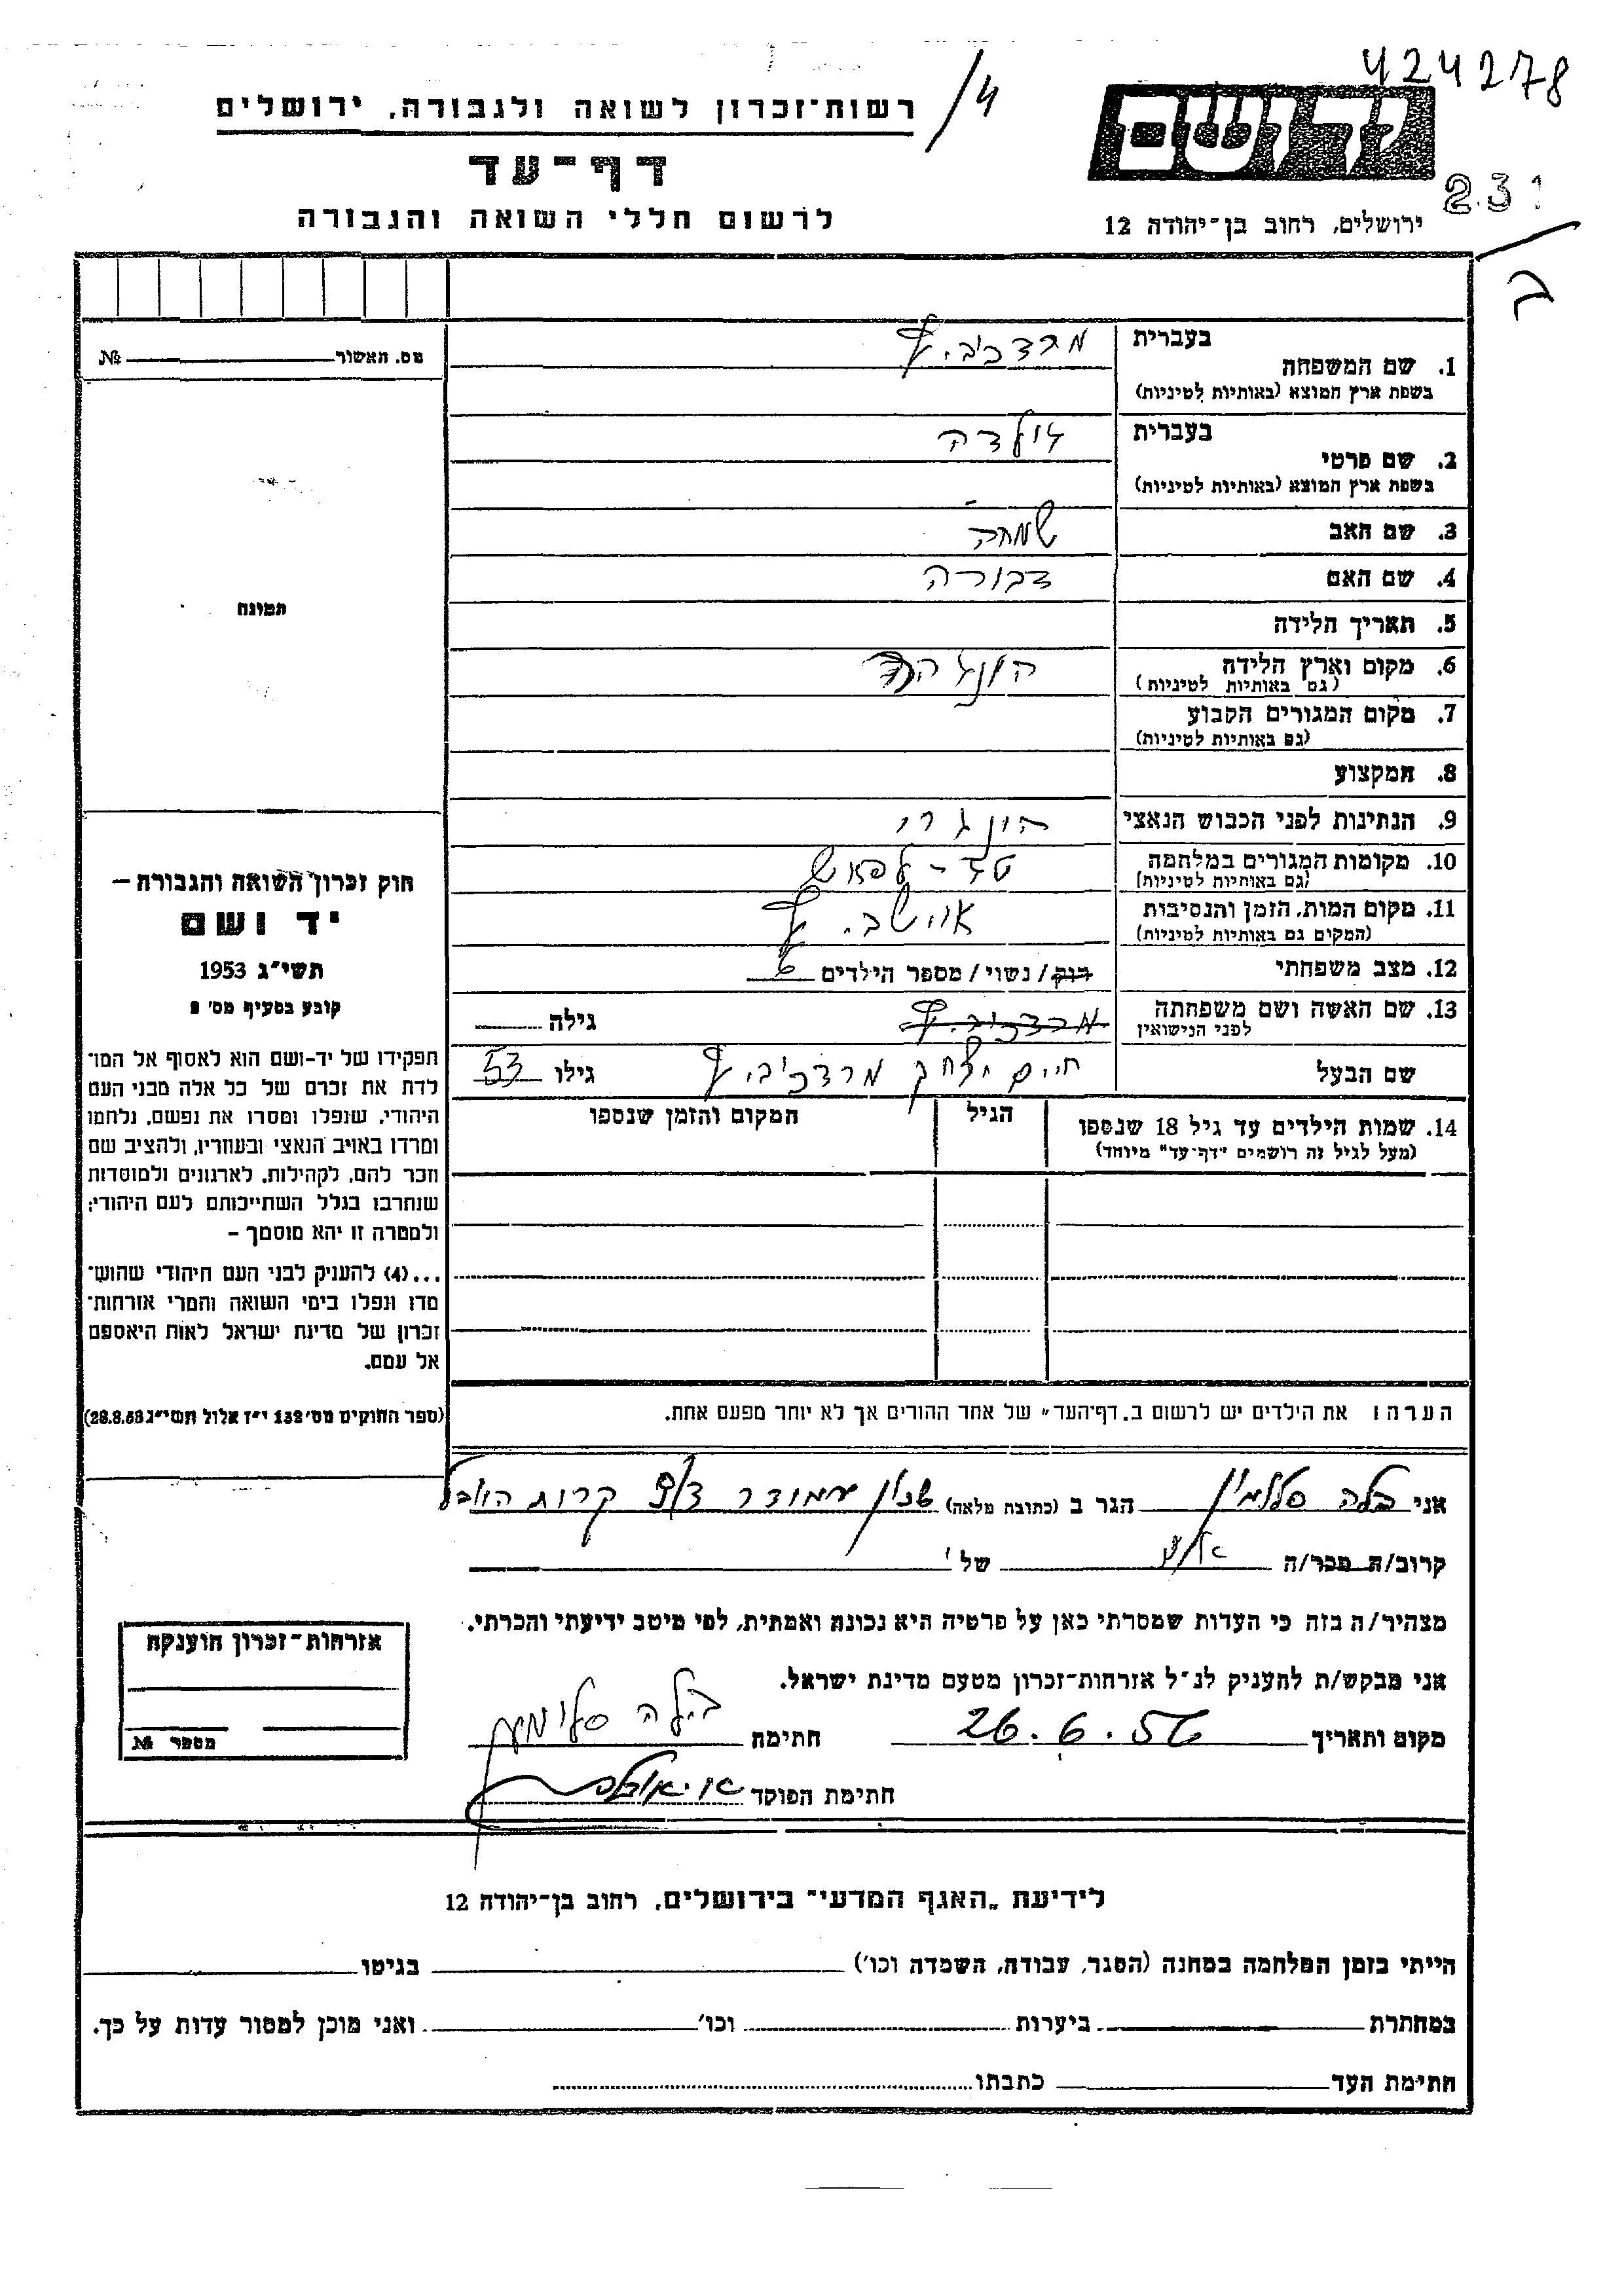 424278
4/
רשות־זכרון לשואה ולגבורה, ירושלים
יד ושם
דף־עד
231
לרשום חללי השואה והגבורה
ירושלים, רחוב בן־יהודה 12
ב
מס. תאשור № 
בעברית
1. שם המשפחה
בשפת ארץ המוצא (באותיות לטיניות)
בעברית
2. שם פרטי
בשפת ארץ המוצא (באותיות לטיניות)
3. שם האב שמחה
4. שם האם דבורה
תמונה
5. תאריך הלידה
6. מקום וארץ הלידה
(גם באותיות לטיניות)
7. מקום המגורים הקבוע
(גם באותיות לטיניות)
8. המקצוע
9. הנתינות לפני הכבוש הנאצי הונגרי
10. מקומות המגורים במלחמה
(גם באותיות לטיניות)
11. מקום המות, הזמן והנסיבות אושביץ
(המקום גם באותיות לטיניות)
12. מצב משפחתי רווק/ נשוי/ מספר הילדים 6
13. שם האשה ושם משפחתה גילה
לפני הנישואין
שם הבעל חיים יצחק מרדכוביץ גילו 53
14. שמות הילדים עד גיל 18 שנספו הגיל המקום והזמן שנספו
(מעל לגיל זה רושמים "דף־עד" מיוחד)
חוק זכרון השואה והגבורה –
יד ושם
תשי"ג 1953
קובע בסעיף מס' 2
תפקידו של יד-ושם הוא לאסוף אל המו־
לדת את זכרם של כל אלה מבני העם
היהודי, שנפלו ומסרו את נפשם, נלחמו
ומרדו באויב הנאצי ובעוזריו, ולהציב שם
וזכר להם, לקהילות, לארגונים ולמוסדות
שנחרבו בגלל השתייכותם לעם היהודי;
ולמטרה זו יהא מוסמך –
...(4) להעניק לבני העם היהודי שהוש־
מדו ונפלו בימי השואה והמרי אזרחות־
זכרון של מדינת ישראל לאות היאספם
אל עמם.
(ספר החוקים מס' 132 י"ז אלול תשי"ג 28.8.53)
הערה: את הילדים יש לרשום ב„דף־העד" של אחד ההורים אך לא יותר מפעם אחת.
אני בלה הגר ב (כתובת מלאה) שכון
קרוב/ת מכר/ה של
מצהיר/ה בזה כי העדות שמסרתי כאן על פרטיה היא נכונה ואמתית, לפי מיטב ידיעתי והכרתי.
אני מבקש/ת להעניק לנ"ל אזרחות־זכרון מטעם מדינת ישראל.
מקום ותאריך 26.6.56 חתימת
חתימת הפוקד
אזרחות־זכרון הוענקה
מספר №
לידיעת „האגף המדעי" בירושלים, רחוב בן־יהודה 12
הייתי בזמן המלחמה במחנה (הסגר, עבודה, השמדה וכו') בגיטו
במחתרת ביערות וכו' ואני מוכן למסור עדות על כך.
חתימת העד כתבתו